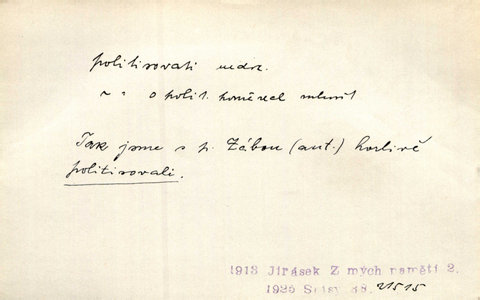 politisovati nedok.
~ " o polit. koměnad mluvit
Tak jsme s p. Žábou (aut.) horlivě
politisovali.
1913 Jirásek Z mých pamětí 2.
1925 Spisy 38. 21515